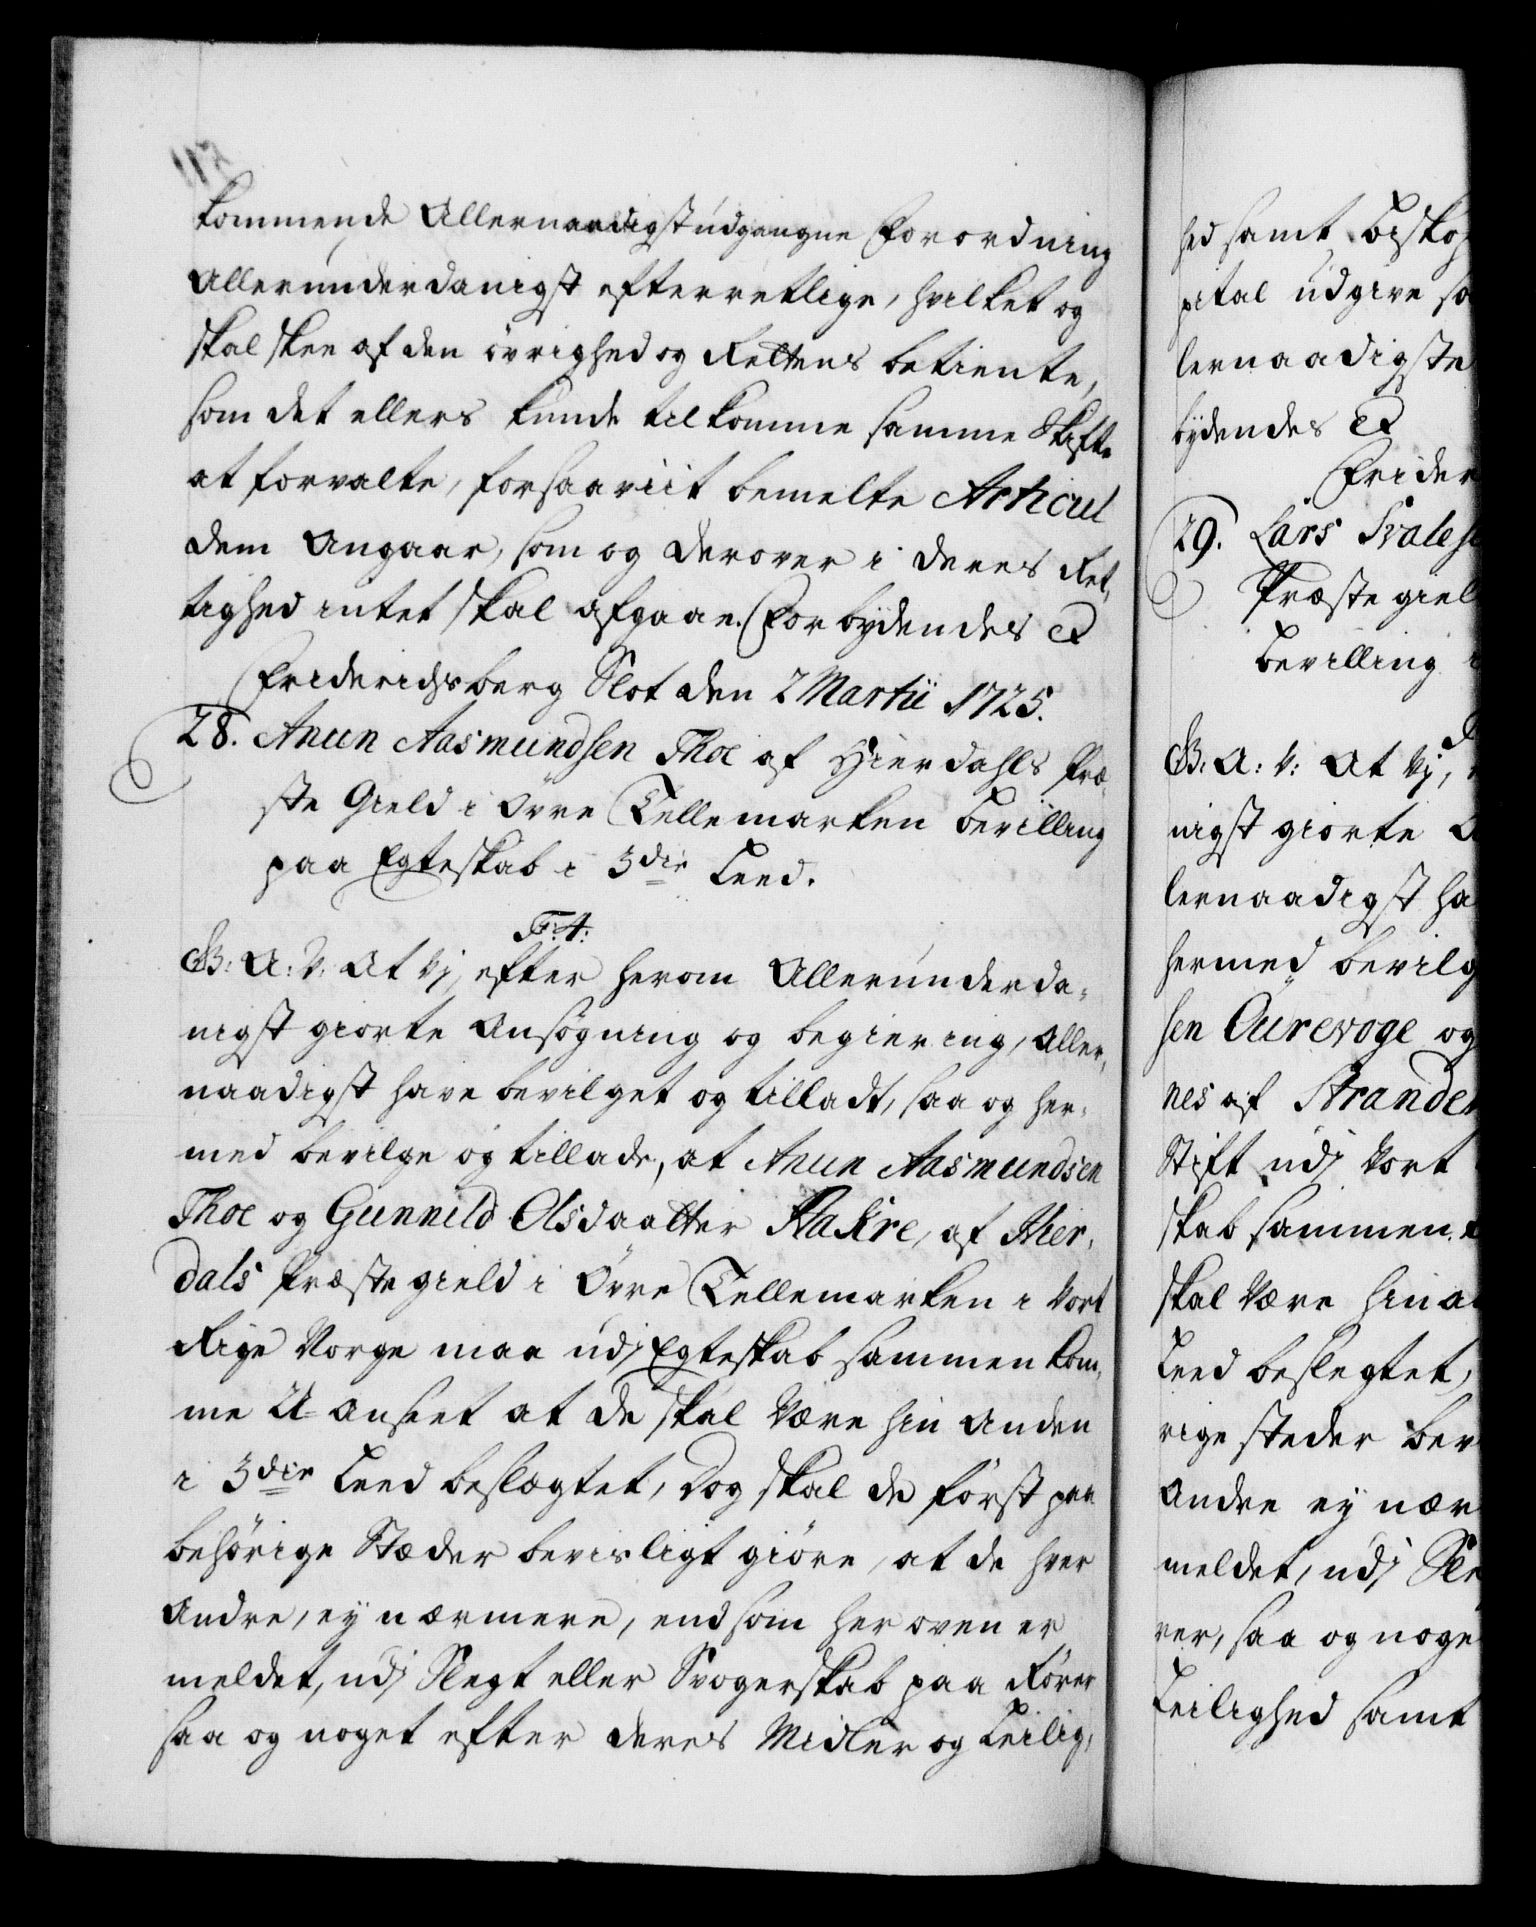 112
kommende Allernaadigst udgangne Forordning
Allerunderdanigst efterretlige, hvilket og
skal skee af den övrighed og Rettens betiente,
som det ellers kunde tilkomme samme Skifte
at forvalte, forsaaviit bemelte Articul
dem Angaar, som og derover i deres Ret,
tighed intet skal afgaae. Forbydendes &
Friderichsberg Slot den 2 Martii 1725.
28. Anun Aasmundsen Thoe af Hierdahls Præ,
ste Gield i Övre Tellemarken bevilling
paa Egteskab i 3die Leed.
F: 4:
G B: A: V: At Vj, efter herom Allerunderda=
nigst giorte Ansögning og begiering, Aller,
naadigst have bevilget og tilladt, saa og her=
med bevilge og tillade, at Anun Aasmundsen
Thoe og Gunnild Olsdaatter Aakre, af Hier,
dals Præstegield i Övre Tellemarken i Vort
Rige Norge maa udj Egteskab sammen kom,
me U-anseet at de skal Være hin Anden
i 3die Leed beslægtet, Dog skal de först paa
behörige Stæder bevisligt giöre, at de hver
Andre, ey nærmere, end som her oven er
meldet, udj Slegt eller Svogerskab paa Rörer
saa og noget efter deres Midler og Leilig,
hed samt
pital udgive
lernaadigste
bydendes &
29. Lars
Præste giel
bevilling
B: A: V: At Vj,
nigst giorte
lernaadigst ha
hermed bevilg
sen Aurevoge og
nes af Strande
Stift udj Vort
skab sammen
skal Være hin a
Leed beslegtet,
rige steder bev
Andre ey nær
meldet, udj Sle
rer, saa og noge
Leilighed samt